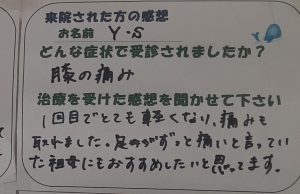 来院された方の感想
お名前 Y・S
どんな症状で受診されましたか？
膝の痛み
治療を受けた感想を聞かせて下さい
1回目でとても軽くなり、痛みも
取れました。足のがずっと痛いと言ってい
た祖母にもおすすめしたいと思ってます。